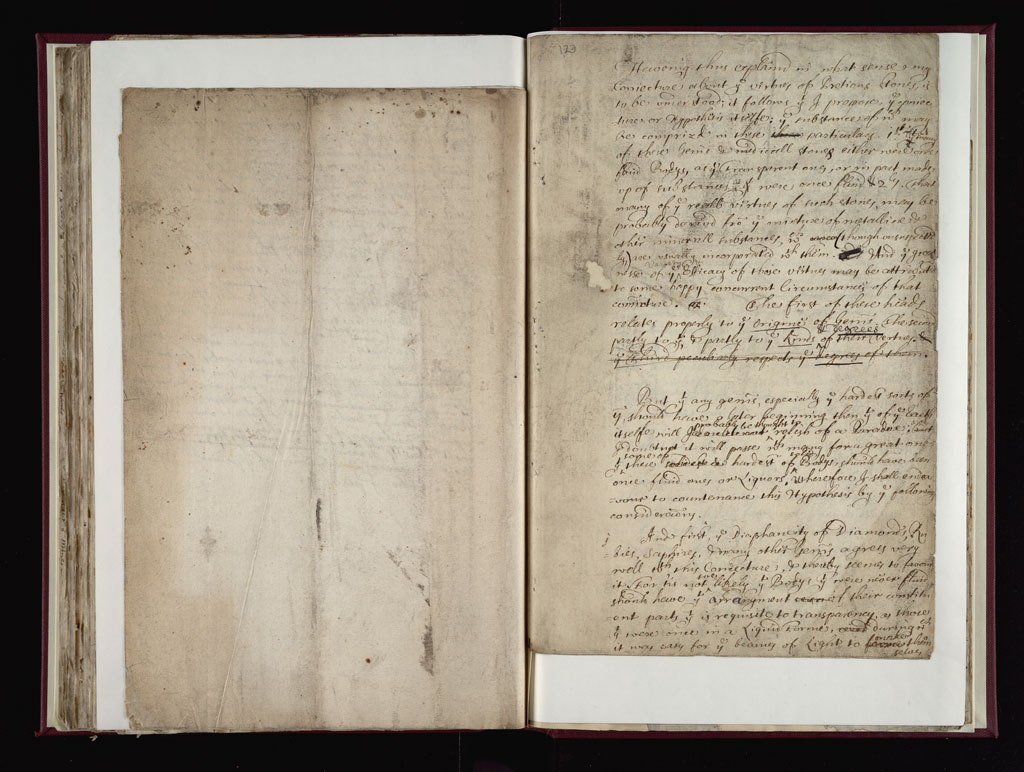 129
Haveing thus explain'd in what sense my
Coniecture about yͤ virtues of Pretious stones, is
to be understood; it follows yͭ I propose yͤ coniec-
ture or Hypothesis it selfe; yͤ substance of wͨͪ may
be compriz'd in these particulars. 1ˢͭ yͭ many
of these Gems & medicall stones either were once
fluid Bodys, as yͤ transparent ones, or in part made
up of substances yͭ were once fluid & 2ˡʸ, that
many of yͤ reall virtues of such stones may be
probably deriv'd frō yͤ mixture of metalline &
other minerall substances, wͨͪ though unsuspected
are usually incorporated wͭͪ them. And yͤ great-
ness, of yͤ Efficacy of those virtues may be attributed
to some happy concurrent Circumstances of that
commixture. The first of these heads
relates properly to yͤ origine of Gems. The second
partly to yͭ, & partly to yͤ Kinds & degrees of their Vertues.
yͤ third peculiarly respects yͤ degrees of them.
But yͭ any gems, especially yͤ hardest sorts of
yͫ, should have a later beginning then yͭ of yͤ Earth
itselfe will probably be thought to relish of a Paradox
I doubt not it will passe wͭͪ many for a great one
yͭ some of these hardest of Bodys, should have been
once fluid ones or Liquors, wherefore I shall endea-
vour to countenance this Hypothesis by yͤ following
consideracōns.
1
And first, yͤ Diaphaneity of Diamonds, Ru-
-bies, Saphires, & many other Gems agrees very
well wͭͪ this Coniecture, & thereby seems to favour
it. For 'tis not likely yͭ Bodys yͭ were never fluid
should have yͭ arrangment of their constitu-
ent parts yͭ is requisite to transparency, as those
yͭ were once in a Liquid forme, during wͨͪ
it was easy for yͤ beames of Light to make them-
selves